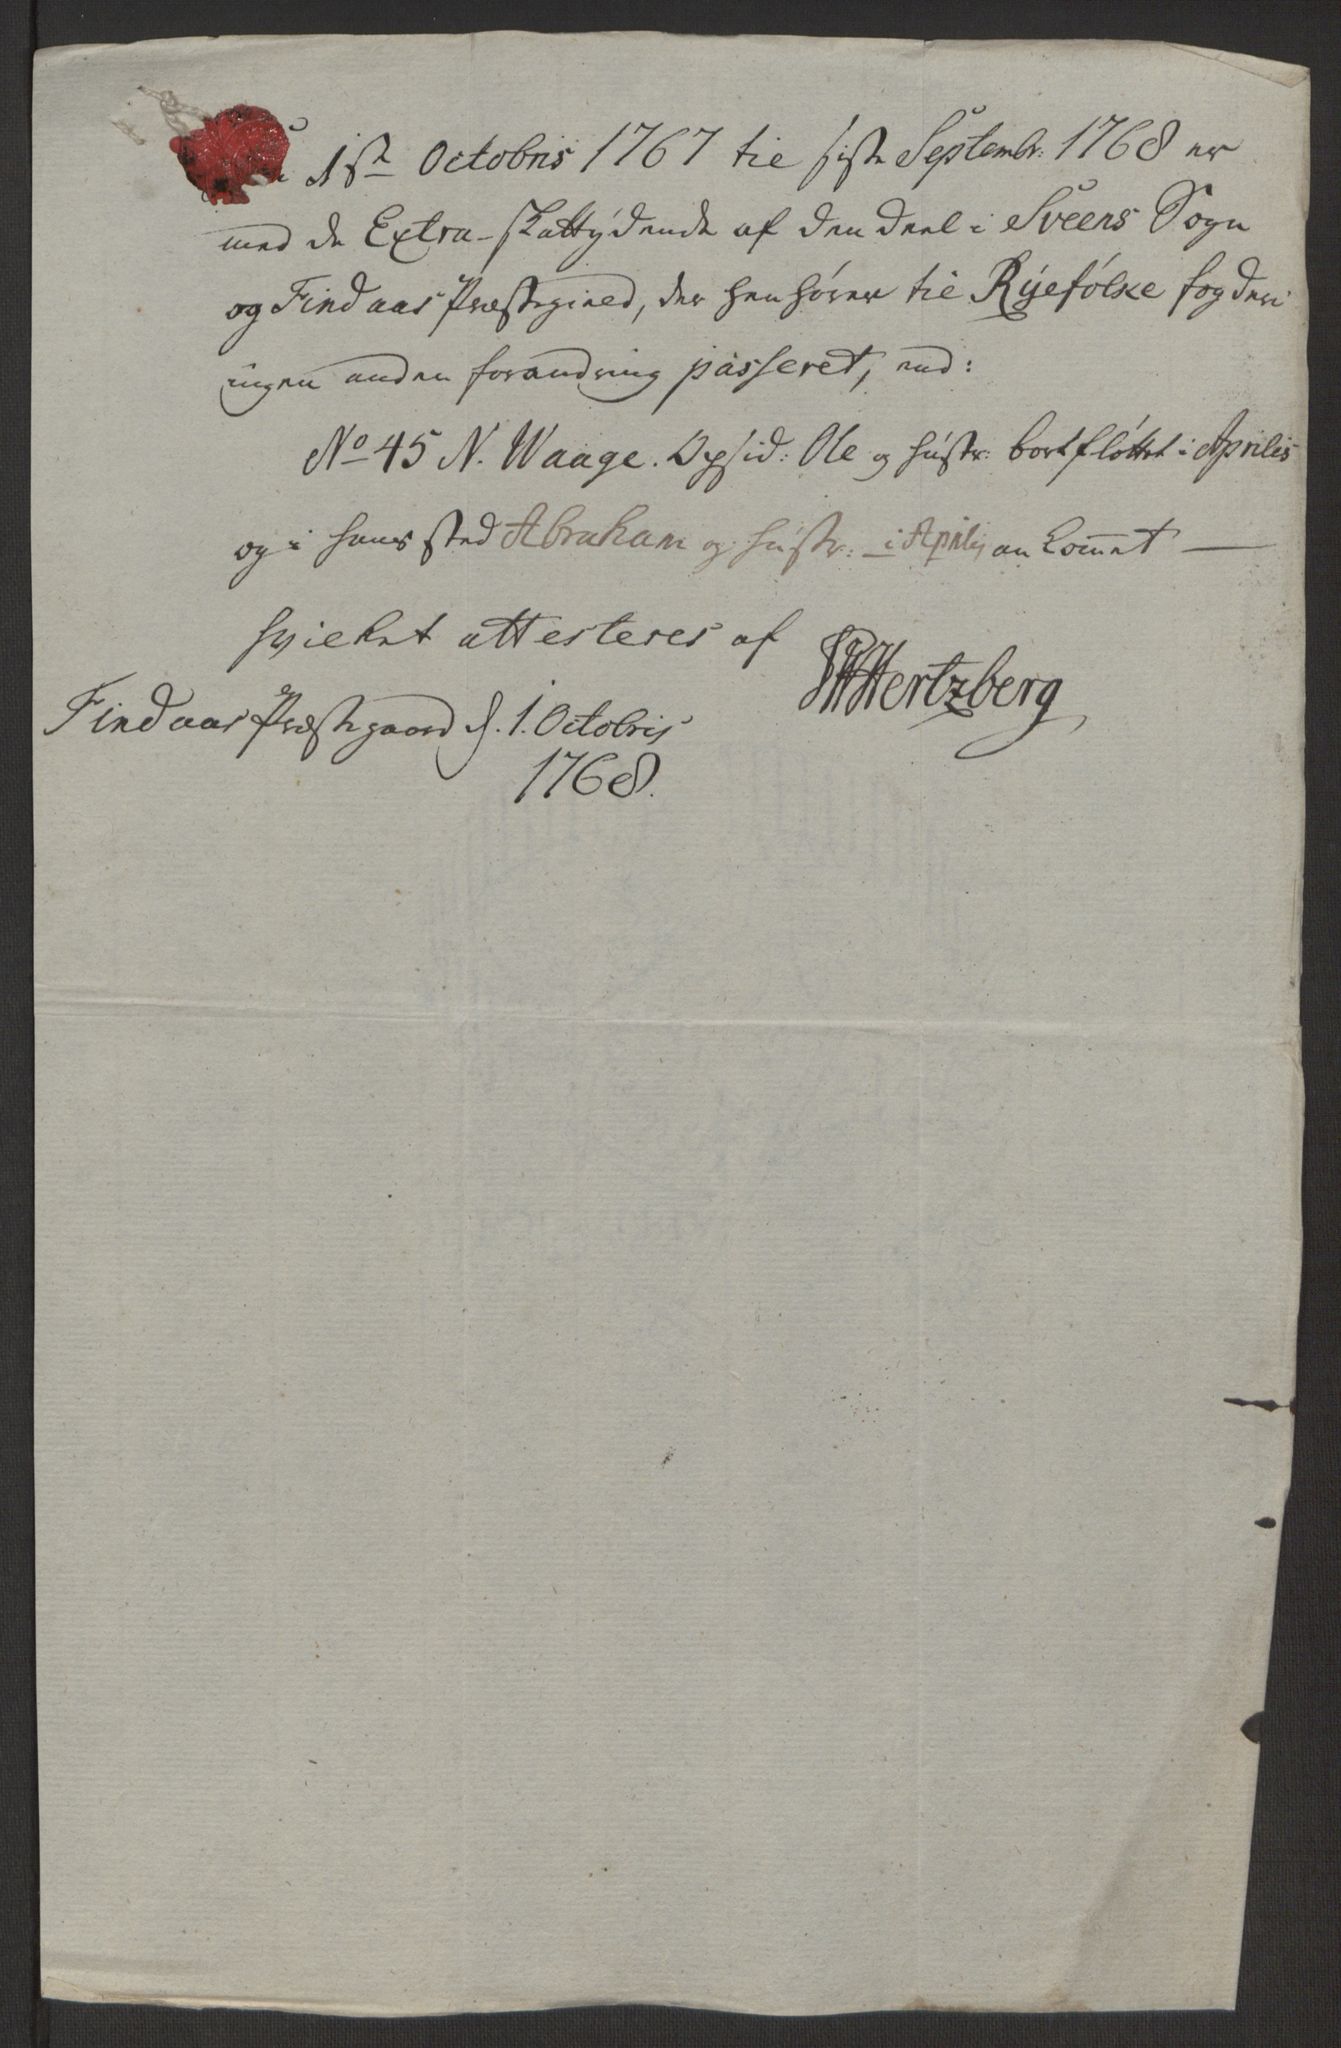 1ste Octobris 1767 til siste Septembr: 1768 er
med de Extra-Skattÿdende af den deel i Sveens Sogn
og Findaas Præstegield, der henhører til Rÿefólke fogderi
ingen anden forandring passeret, end:
No 45 N. Waage. Opsid: Ole og hústr: bortfløttet i Aprilis
og i hans sted Abraham og hústr: i Aprilis ankommet —
hvilket attesteres af
Hertzberg
Findaas Præstegaard d. 1. Octobris
1768.